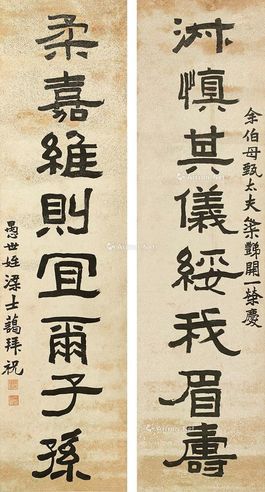 淑慎其儀綏我眉壽
余伯母甄太夫豑開一榮慶
柔嘉維則宜爾子孫
愚世姪梁士藹拜祝